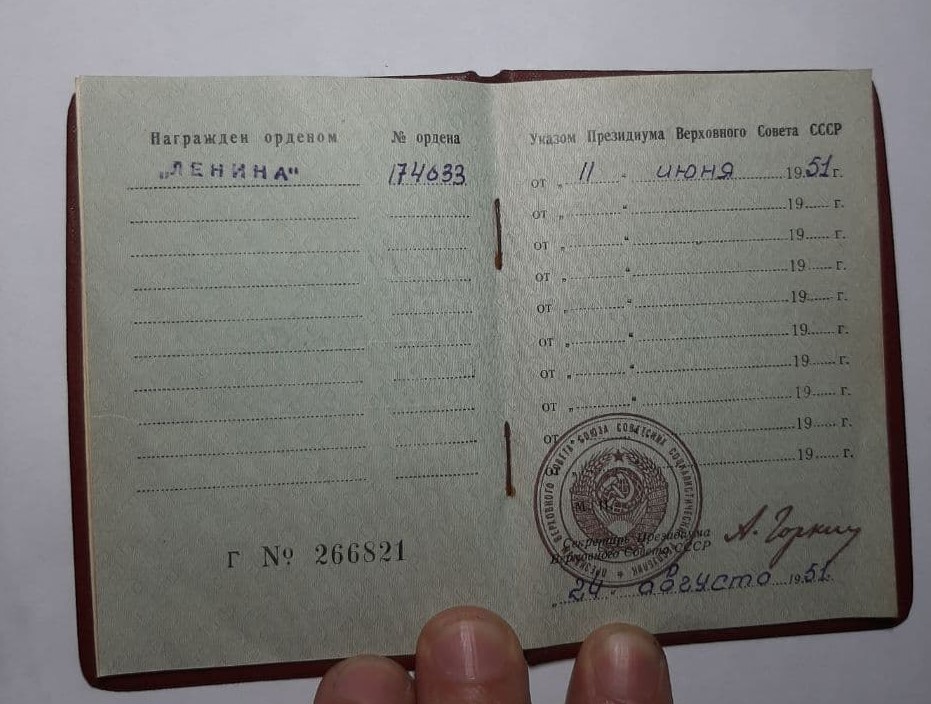 Награжден орденом № ордена
„ЛЕНИНА" 174633
Г № 266821
Указом Президиума Верховного Совета СССР
от „ 11 " июня 1951 г.
от „ " 19 г.
от „ " 19 г.
от „ " 19 г.
от „ " 19 г.
от „ " 19 г.
от „ " 19 г.
от „ " 19 г.
от 19 г.
19 г.
М. П.
Секретарь Президиума
Верховного Совета СССР
А. Горкин
„ 24 " августа 1951 г.
ВЕРХОВНОГО СОВЕТА СОЮЗА СОВЕТСКИХ СОЦИАЛИСТИЧЕСКИХ